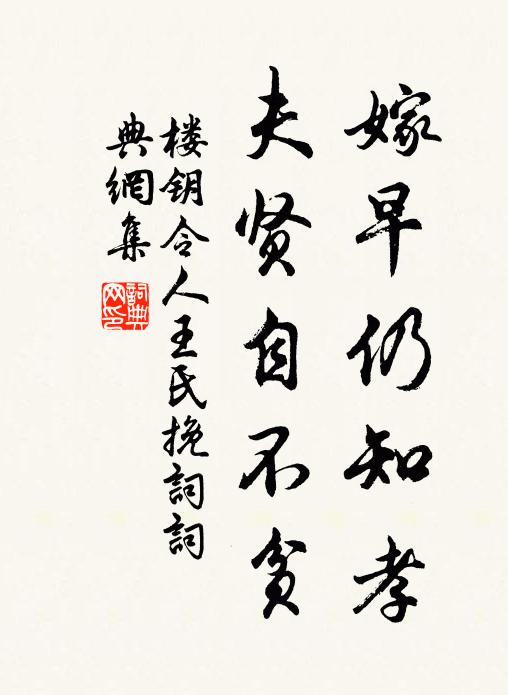 嫁早仍知孝
夫贤自不贫
楼钥令人王氏挽词詞
典網集
詞典
网印